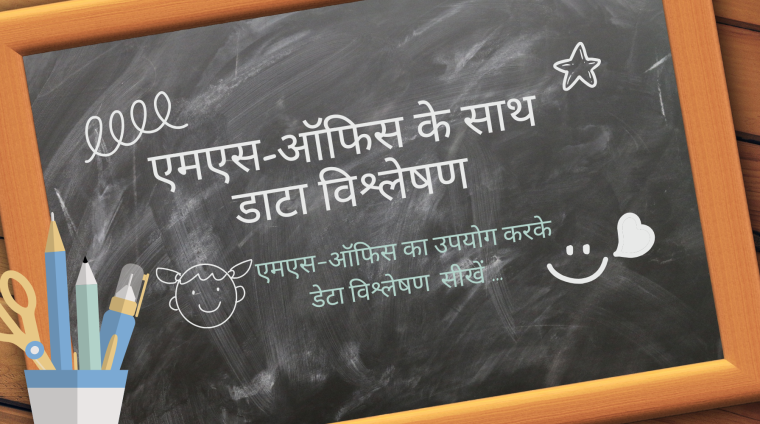 एमएस-ऑफिस के साथ
डाटा विश्लेषण
एमएस-ऑफिस का उपयोग करके
डेटा विश्लेषण सीखें ...